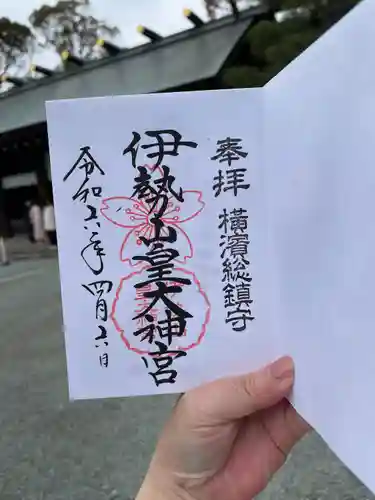 奉拝
横濱総鎮守
伊勢山皇大神宮
令和六年四月六日